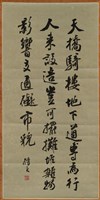 天橋騎樓地下道專為行
人來設造豈可擺攤堆雜物
影響交通礙市貌